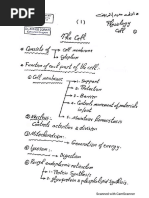 ( 1 )
Physiology
Cell
The Cell
* Consists of → Cell membrane
→ Cytoplasm
* Function of each part of the cell:-
① Cell membrane → 1. Support
→ 2. Protection
→ 3. Barrier
→ 4. Controls movement of materials
in / out
② Nucleus:-
Controls activities & division
③ Mitochondria:- → Generation of energy
④ Lysosome :- → Digestion
⑤ Rough endoplasmic reticulum
→ 1- Protein Synthesis
→ 2- Lipoprotein & phospholipid Synthesis.
Scanned with CamScanner